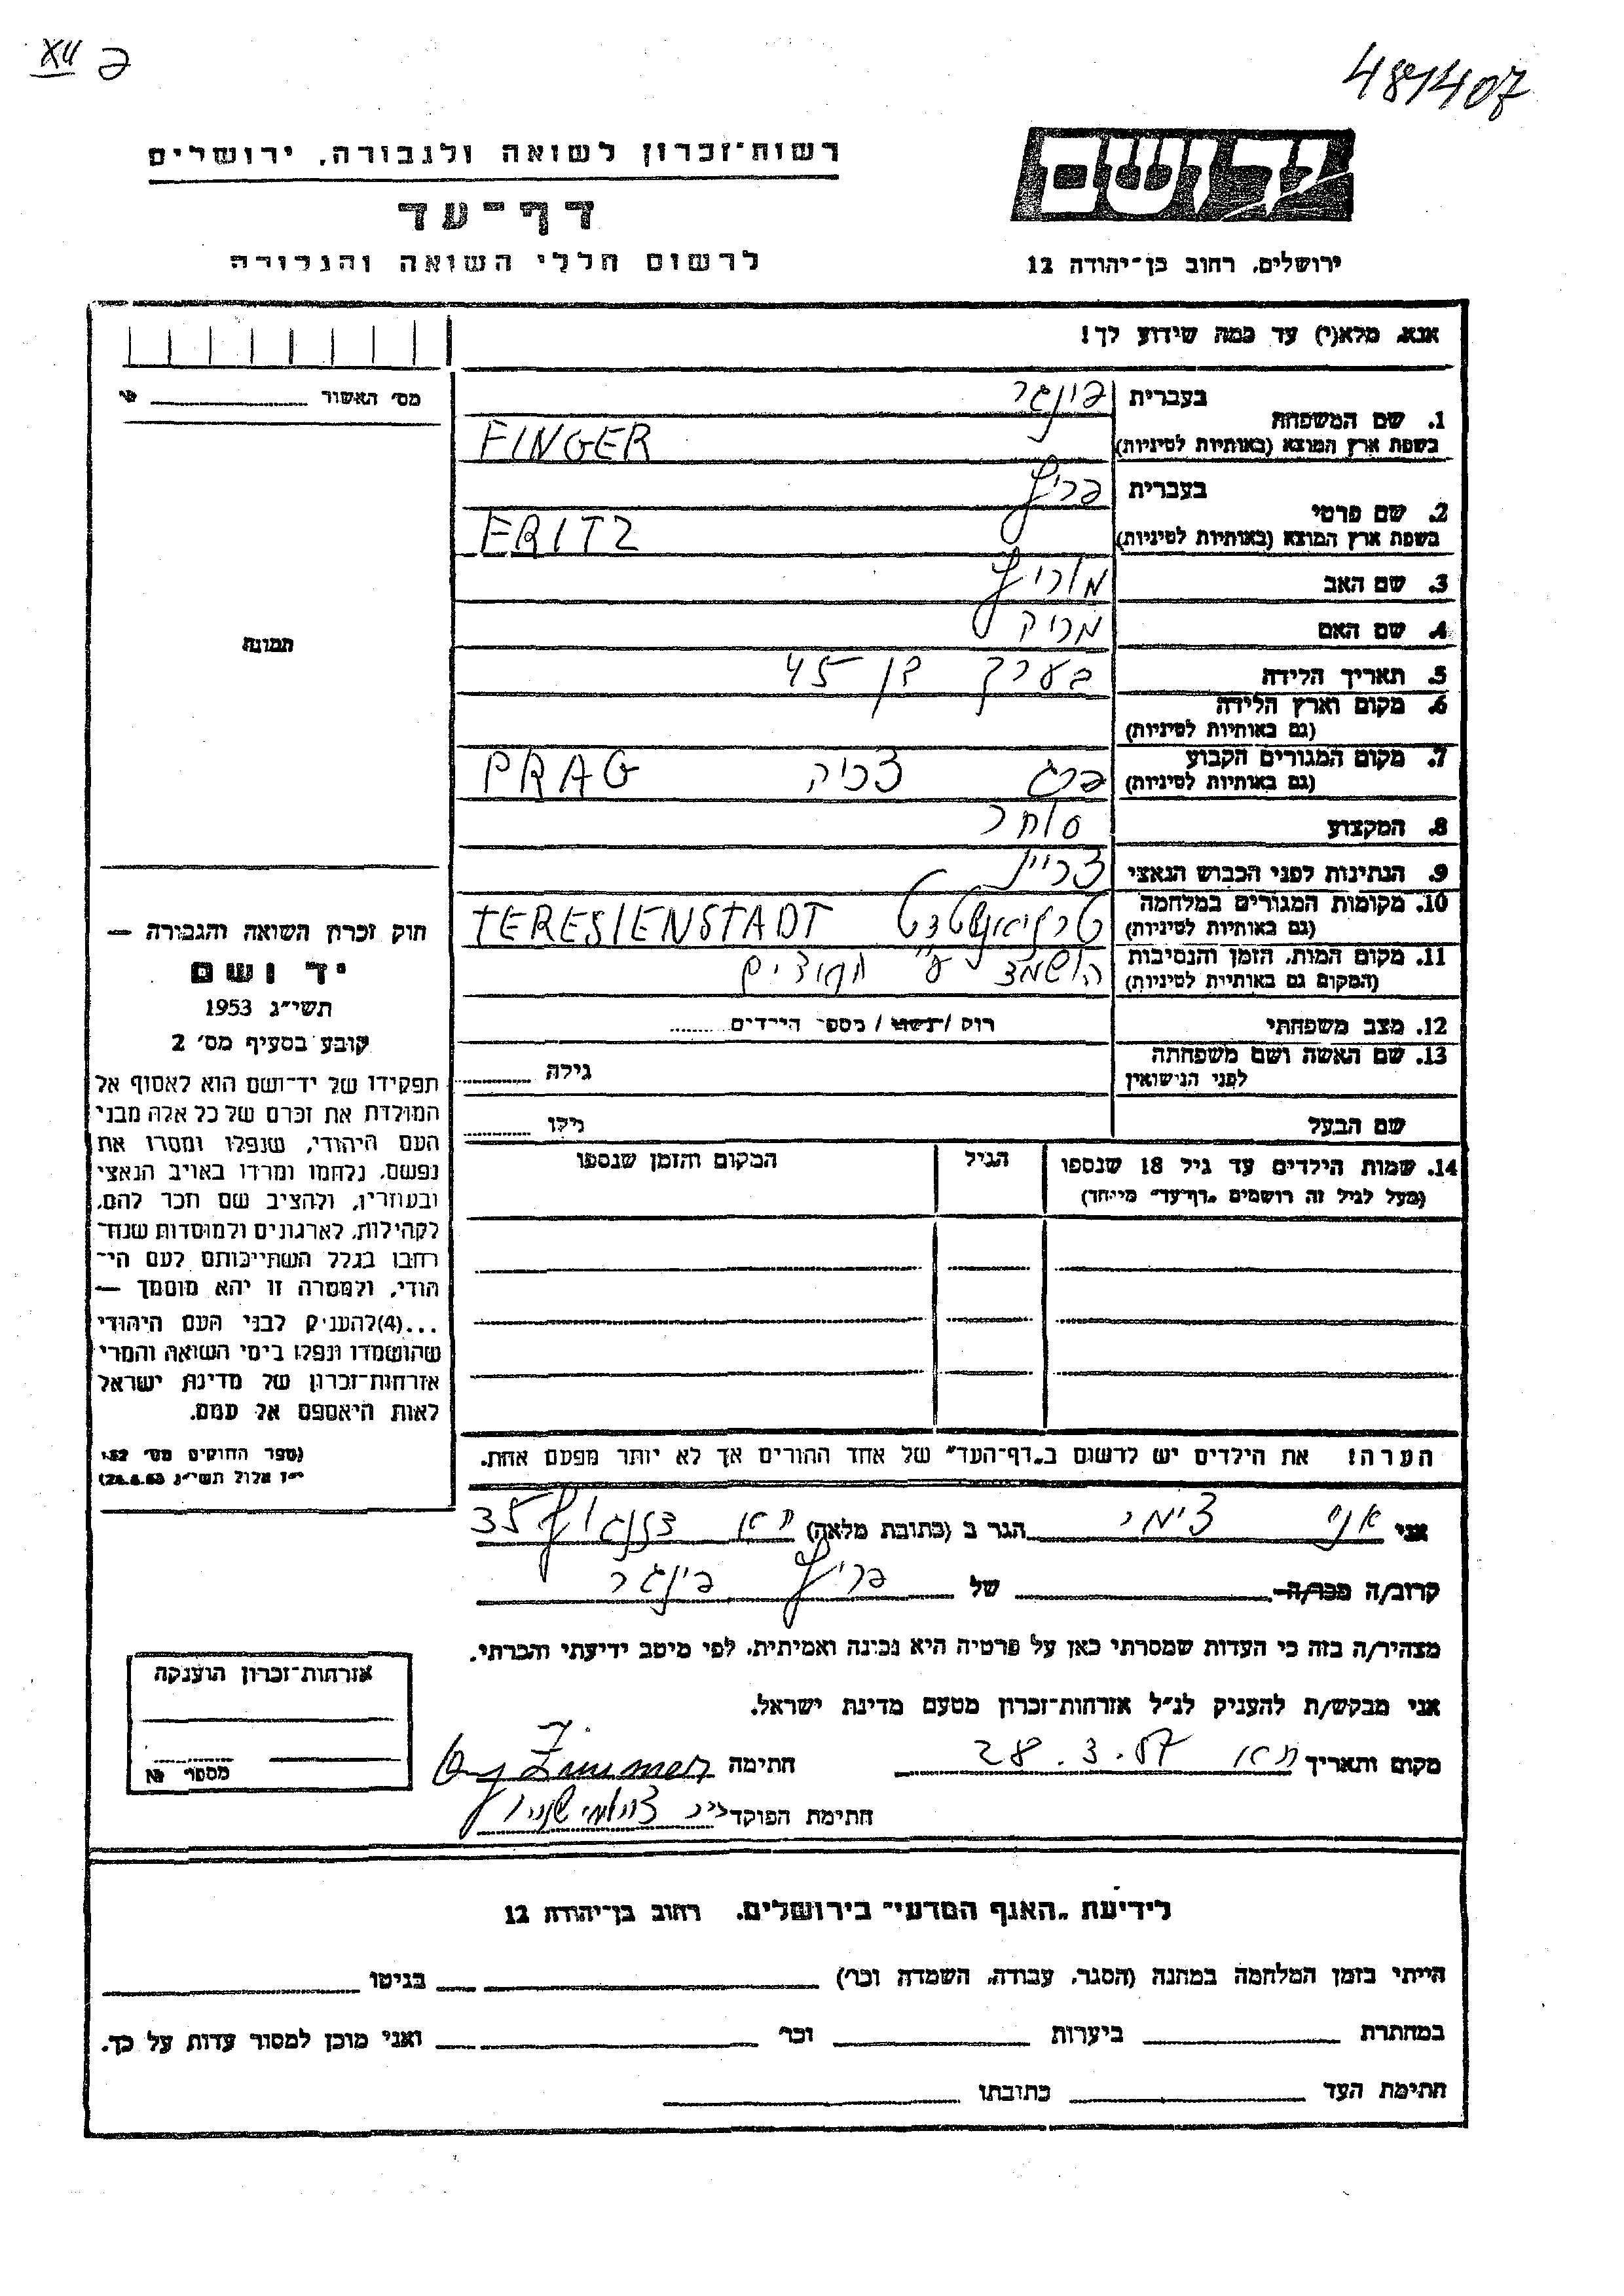 XII פ
481407
רשות־זכרון לשואה ולגבורה, ירושלים
יד ושם
דף־עד
לרשום חללי השואה והגבורה
ירושלים, רחוב בן־יהודה 12
אנא, מלא(י) עד כמה שידוע לך!
מס׳ האשור
1. שם המשפחה בעברית פינגר
בשפת ארץ המוצא (באותיות לטיניות) FINGER
2. שם פרטי בעברית פריץ
בשפת ארץ המוצא (באותיות לטיניות) FRITZ
3. שם האב מוריץ
4. שם האם
5. תאריך הלידה בערך בן 45
6. מקום וארץ הלידה
(גם באותיות לטיניות)
7. מקום המגורים הקבוע פרג צכיה PRAG
(גם באותיות לטיניות)
8. המקצוע סוחר
9. הנתינות לפני הכבוש הנאצי
10. מקומות המגורים במלחמה TERESIENSTADT
(גם באותיות לטיניות)
11. מקום המות, הזמן והנסיבות הושמד ע״
(המקום גם באותיות לטיניות)
12. מצב משפחתי רווק / נשוי / מספר הילדים
13. שם האשה ושם משפחתה
לפני הנישואין גילה
שם הבעל גילו
14. שמות הילדים עד גיל 18 שנספו הגיל המקום והזמן שנספו
(מעל לגיל זה רושמים „דף־עד" מיוחד)
הערה! את הילדים יש לרשום ב„דף־העד" של אחד ההורים אך לא יותר מפעם אחת.
תמונה
חוק זכרון השואה והגבורה —
יד ושם
תשי״ג 1953
קובע בסעיף מס׳ 2
תפקידו של יד־ושם הוא לאסוף אל
המולדת את זכרם של כל אלה מבני
העם היהודי, שנפלו ומסרו את
נפשם, נלחמו ומרדו באויב הנאצי
ובעוזריו, ולהציב שם וזכר להם,
לקהילות, לארגונים ולמוסדות שנח־
רבו בגלל השתייכותם לעם הי־
הודי, ולמטרה זו יהא מוסמך —
...(4)להעניק לבני העם היהודי
שהושמדו ונפלו בימי השואה והמרי
אזרחות־זכרון של מדינת ישראל
לאות היאספם אל עמם.
(ספר החוקים מס׳ 132
אני הגר ב (כתובת מלאה) 35
קרוב/ה מכר/ה של פריץ פינגר
מצהיר/ה בזה כי העדות שמסרתי כאן על פרטיה היא נכונה ואמיתית, לפי מיטב ידיעתי והכרתי.
אני מבקש/ת להעניק לנ״ל אזרחות־זכרון מטעם מדינת ישראל.
מקום ותאריך תא 28.3.57 חתימה
חתימת הפוקד
אזרחות־זכרון הוענקה
מספר №
לידיעת „האגף המדעי" בירושלים, רחוב בן־יהודה 12
הייתי בזמן המלחמה במחנה (הסגר, עבודה, השמדה וכו׳) בגיטו
במחתרת ביערות וכו׳ ואני מוכן למסור עדות על כך.
חתימת העד כתובתו